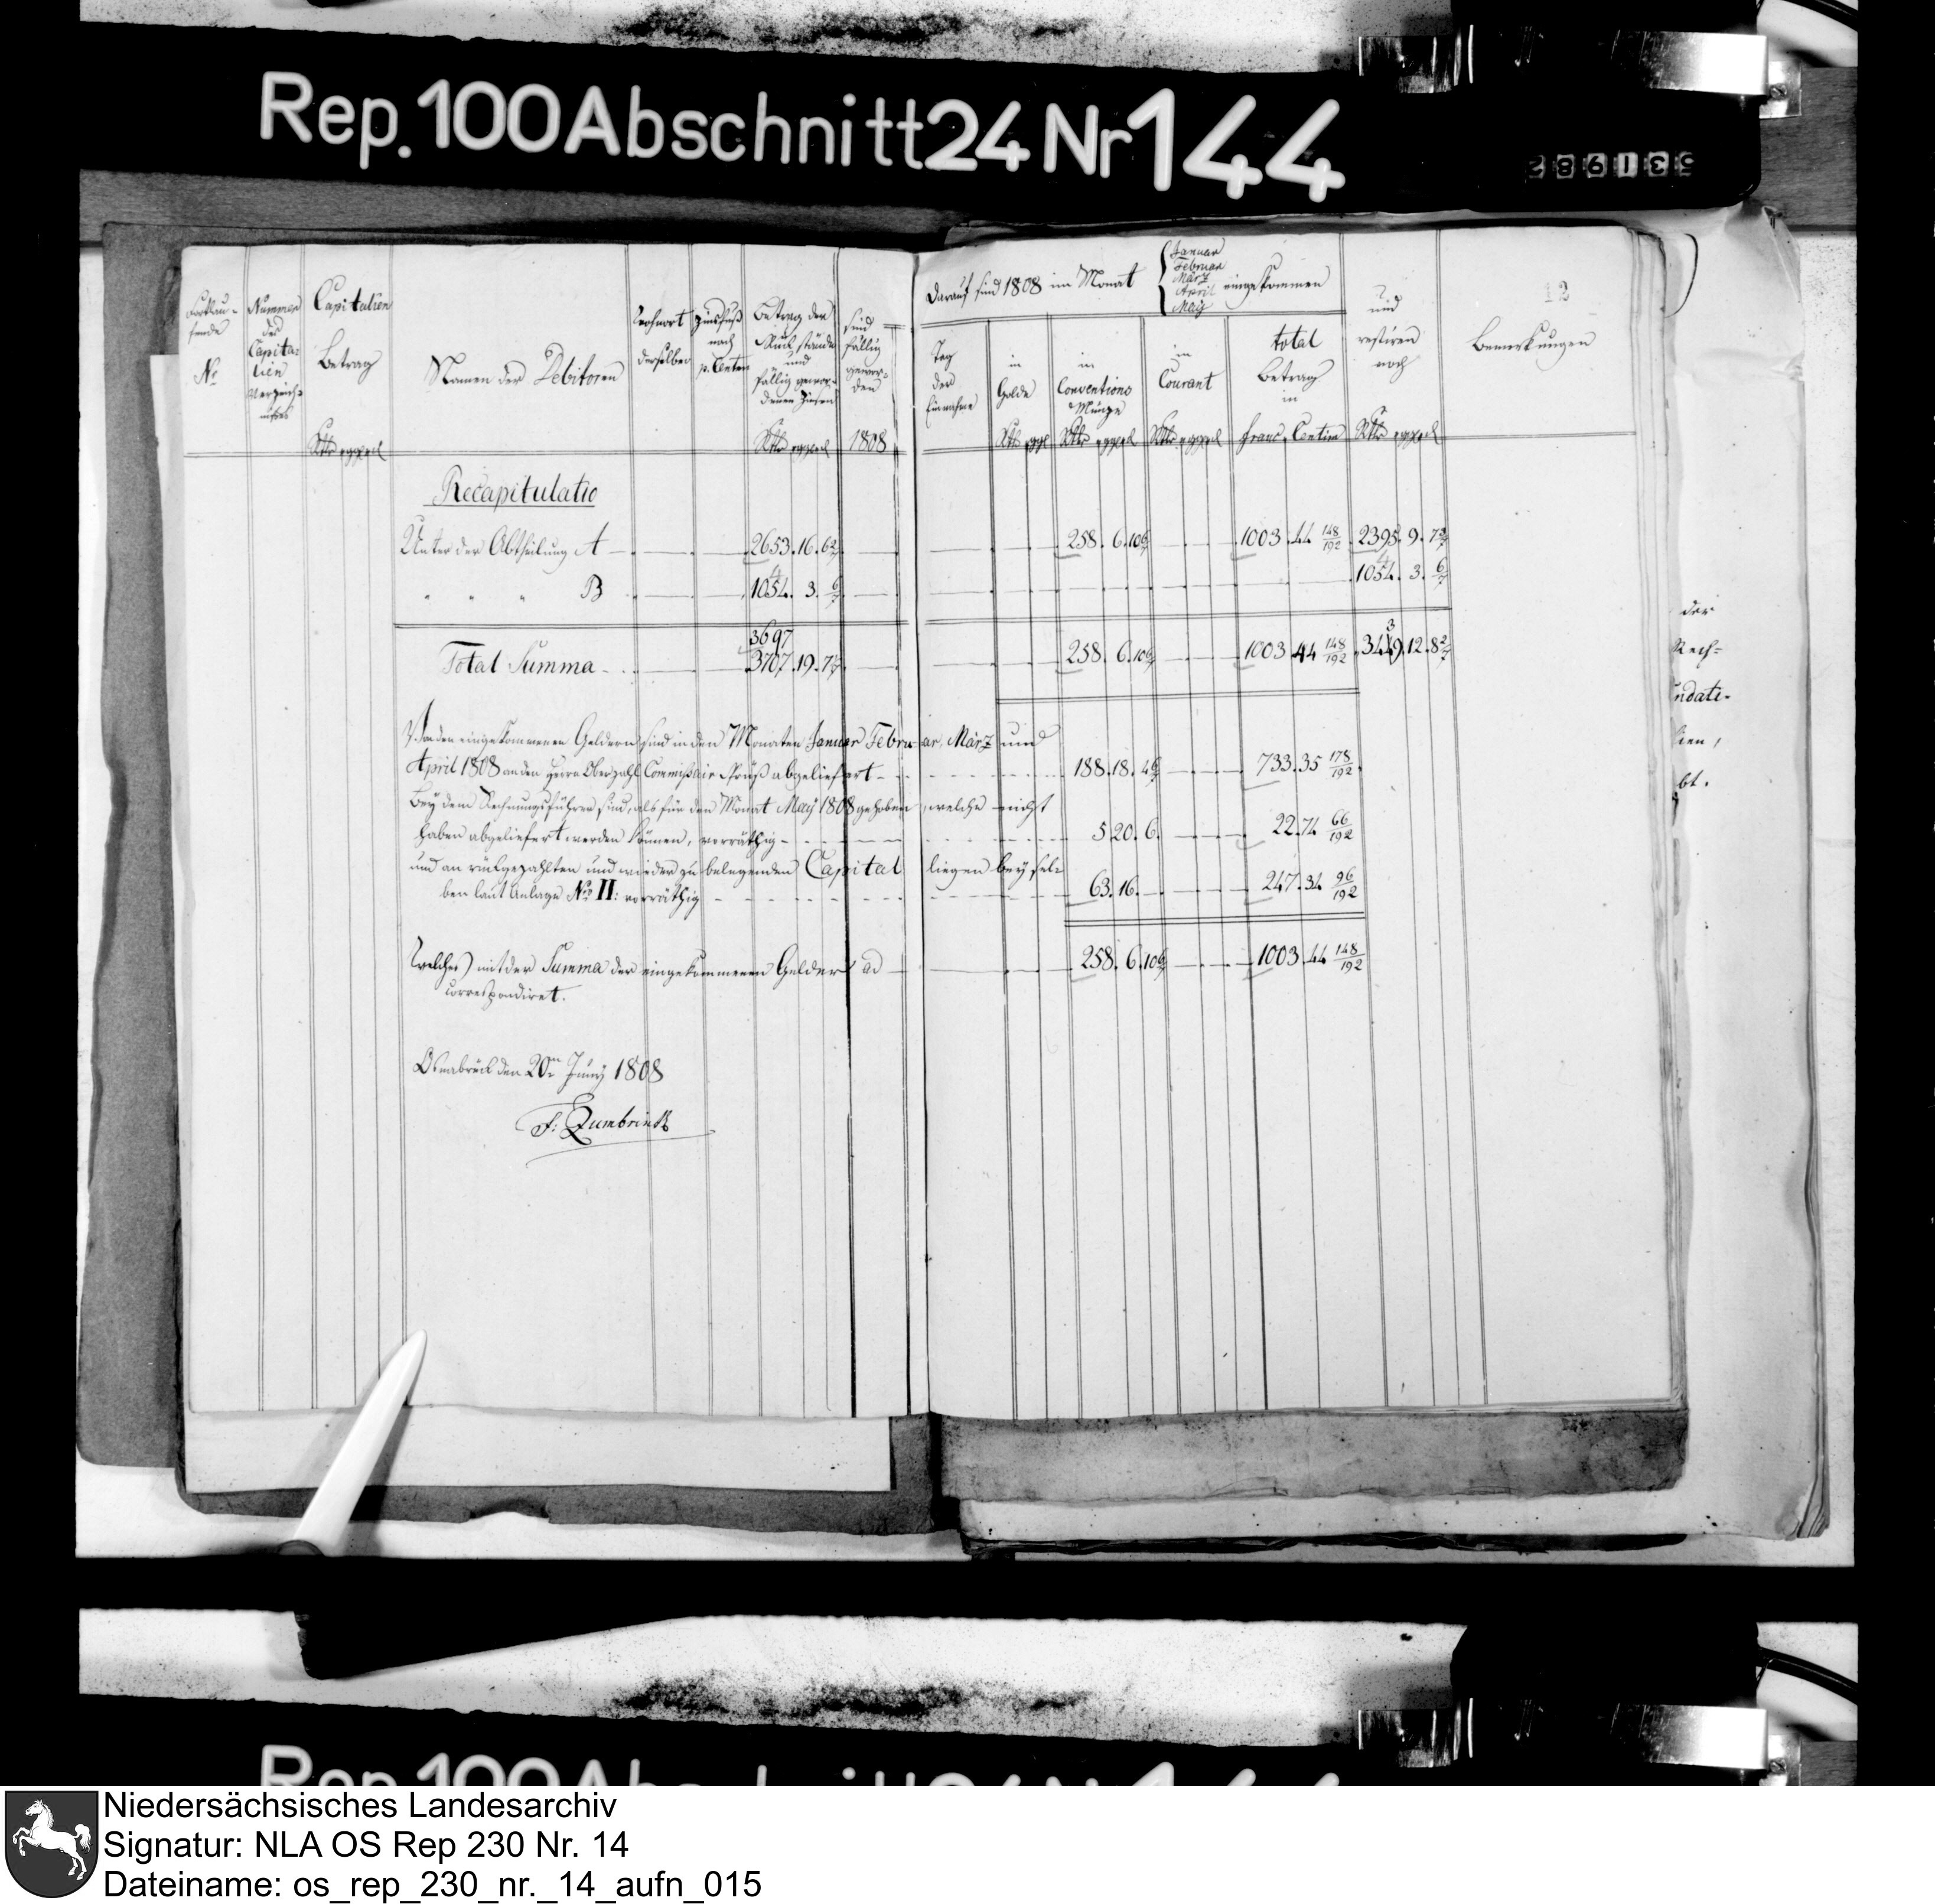 Rep. 100 Abschnitt 24 Nr 144
531982
Fortlau-
fende
No
Nummer
der
Capita-
lien
Verzeich-
nißes
Capitalien
Betrag
Rtlr ggr d
Namen der Debitoren
Wohnort
derselben
Zinsfuß
nach
p. Centen
Betrag der
Rückstände
und
fällig gewor-
denen Zinsen
Rtlr ggr d
sind
fällig
gewor-
den
1808
Darauf sind 1808 im Monat
Januar
Februar
März
April
May
eingekommen
Tag
der
Einnahme
in
Golde
Rtlr ggr
in
Conventions
Münze
Rtlr ggr d
in
Courant
Rtlr ggr d
total
Betrag
in
franc. Centim
und
restiren
noch
Rtlr ggr d
Bemerkungen
12
Recapitulatio
Unter der Abtheilung A 2653. 16. 6 2/7 258. 6. 10 6/7 1003. 44 148/192 2395. 9. 7 3/7
" " " B 1054. 3. 6/7 1054. 3. 6/7
3697
Total Summa 3707. 19. 7 1/7 258. 6. 10 6/7 1003 44 148/192 3449. 12. 8 2/7
Von den eingekommenen Geldern sind in den Monaten Januar Februar, März und
April 1808 an den Herrn Oberzahl Commißair Pruß abgeliefert 188. 18. 4 6/7 733. 35 178/192
Bey dem Rechnungsführer sind, als für den Monat May 1808 gehoben, welche nicht
haben abgeliefert werden können, vorräthig 5 20. 6. 22. 74 66/192
und an rückgezahlten und wieder zu belegenden Capital liegen bey sel-
ben laut Anlage No II: vorräthig 63. 16. 247. 34 96/192
Welches mit der Summa der eingekommenen Gelder ad 258. 6. 10 6/7 1003. 44 148/192
correspondiret.
Osnabrück den 20n Juny 1808
F: Zumbrink
der
Rech-
ndate-
lien,
bt.
Niedersächsisches Landesarchiv
Signatur: NLA OS Rep 230 Nr. 14
Dateiname: os_rep_230_nr._14_aufn_015